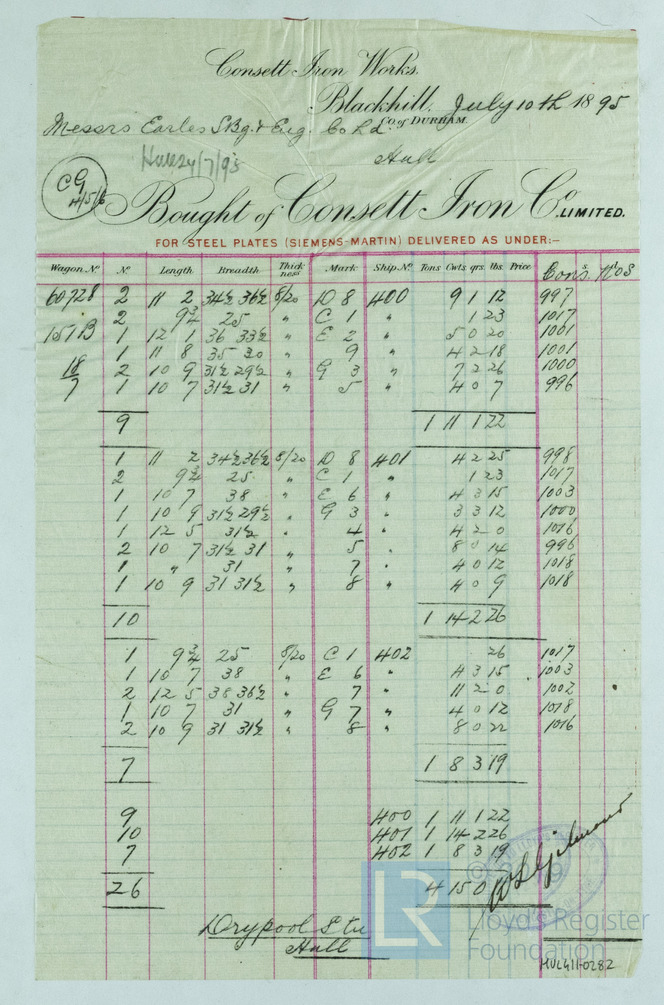 Consett Iron Works.
Blackhill, July 10th 1895
Co. of DURHAM.
Messrs Earles SBg. & Eng. Co Ld.
Hull
Hull 24/7/95
CG
Bought of Consett Iron Co. LIMITED.
FOR STEEL PLATES (SIEMENS-MARTIN) DELIVERED AS UNDER:—
Wagon. No No Length Breadth Thickness Mark Ship No. Tons Cwts. qrs. lbs. Price Cons. Nos
60728 2 11 2 34½ 36½ 8/20 D 8 400 9 1 12 997
2 9¾ 25 " C 1 " 1 23 1017
151B 1 12 1 36 33½ " E 2 " 5 0 20 1001
1 11 8 35 30 " 9 " 4 2 18 1001
18 2 10 9 31½ 29½ " G 3 " 7 2 26 1000
7 1 10 7 31½ 31 " 5 " 4 0 7 996
9 1 11 1 22
1 11 2 34½ 36½ 8/20 D 8 401 4 2 25 998
2 9¾ 25 " C 1 " 1 23 1017
1 10 7 38 " E 6 " 4 3 15 1003
1 10 9 31½ 29½ " G 3 " 3 3 12 1000
1 12 5 31½ " 4 " 4 2 0 1016
2 10 7 31½ 31 " 5 " 8 0 14 996
1 " 31 " 7 " 4 0 12 1018
1 10 9 31 31½ " 8 " 4 0 9 1018
10 1 14 2 26
1 9¾ 25 8/20 C 1 402 26 1017
1 10 7 38 " E 6 " 4 3 15 1003
2 12 5 38 36½ " 7 " 11 2 0 1002
1 10 7 31 " G 7 " 4 0 12 1018
2 10 9 31 31½ " 8 " 8 0 22 1016
7 1 8 3 19
9 400 1 11 1 22
10 401 1 14 2 26
7 402 1 8 3 19
26 4 15 0
Drypool Stn
Hull
LR
Lloyd's Register
Foundation
HUL411-0282